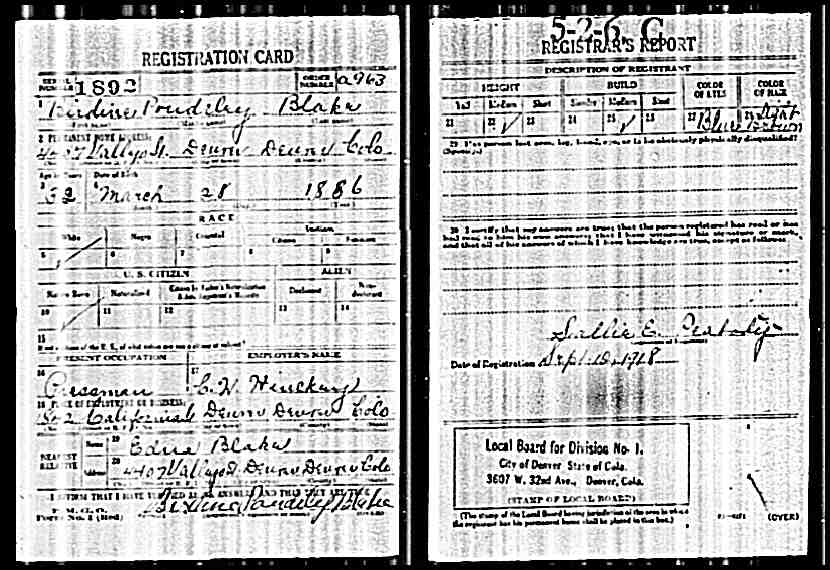 REGISTRATION CARD
SERIAL NUMBER 1892
ORDER NUMBER
1 Blake
2 PERMANENT HOME ADDRESS:
4407 Vallejo St. Denver Denver Colo
Age in Years Date of Birth
3 32 4 March 28 1886
RACE
White Negro Oriental Indian
Citizen
5 6 7 8 9
U. S. CITIZEN ALIEN
Native Born Naturalized Declarant Non-declarant
10 11 12 13 14
15
PRESENT OCCUPATION EMPLOYER'S NAME
16 Pressman 17 C. H.
18 PLACE OF EMPLOYMENT OR BUSINESS:
California St Denver Denver Colo
NEAREST RELATIVE
Name 19 Edna Blake
Address 20 4407 Vallejo St Denver Denver Colo
I AFFIRM THAT I HAVE VERIFIED ABOVE ANSWERS AND THAT THEY ARE TRUE
P. M. G. O.
Form No. 1 (Red)
Blake
5-2-6. C
REGISTRAR'S REPORT
DESCRIPTION OF REGISTRANT
HEIGHT BUILD COLOR OF EYES COLOR OF HAIR
Tall Medium Short Slender Medium Stout
21 22 ✓ 23 24 25 ✓ 26 27 Blue 28 Light Brown
29 Has person lost arm, leg, hand, eye, or is he obviously physically disqualified?
(Specify.)
30 I certify that my answers are true; that the person registered has read or has
had read to him his own answers; that I have witnessed his signature or mark,
and that all of his answers of which I have knowledge are true, except as follows:
Sallie E. Peabody
Date of Registration Sept. 12, 1918
Local Board for Division No. 1,
City of Denver State of Colo.
3607 W. 32nd Ave., Denver, Colo.
(STAMP OF LOCAL BOARD)
(The stamp of the Local Board having jurisdiction of the area in which
the registrant has his permanent home shall be placed in this box.)
(OVER)